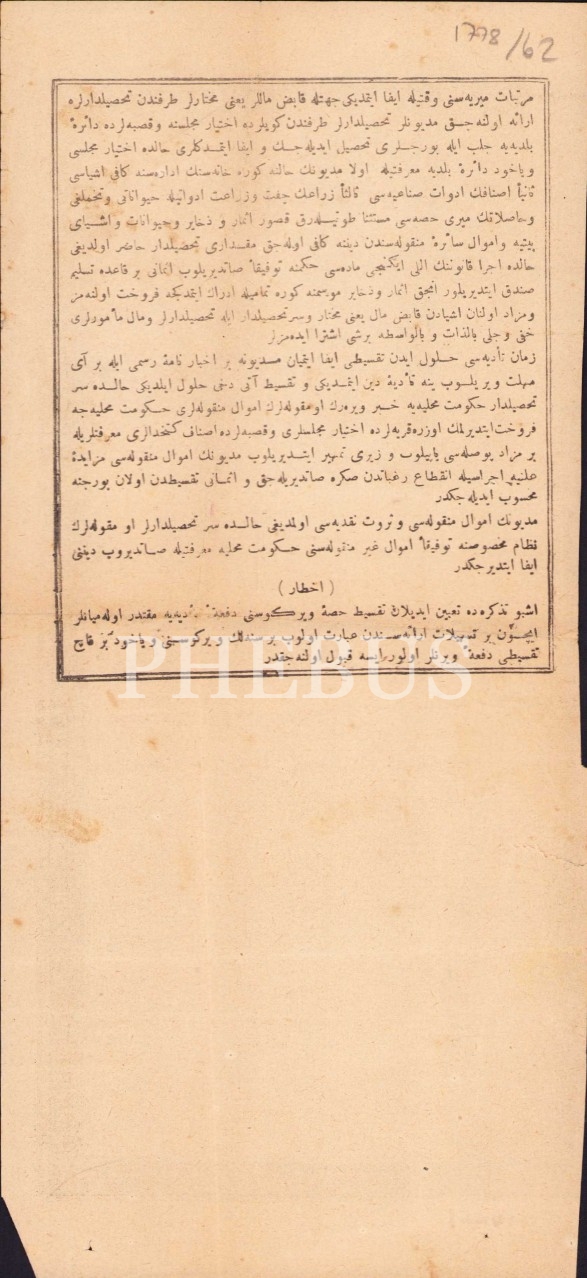 1778/62
مرتبات ميريه‌سنى وقتيله ايفا ايتمديكى جهتله قابض ماللر يعنى مختارلر طرفندن تحصيلدارلره
ارائه اولنه‌جق مديونلر تحصيلدارلر طرفندن كويلرده اختيار مجلسنه وقصبه‌لرده دائرۀ
بلديه‌يه جلب ايله بورجلرى تحصيل ايديله‌جك و ايفا ايتمدكلرى حالده اختيار مجلسى
وياخود دائرۀ بلديه معرفتيله اولا مديونك حالنه كوره خانه‌سنك اداره‌سنه كافى اشياسى
ثانياً اصنافك ادوات صناعيه‌سى ثالثاً زراعك چفت وزراعت ادواتيله حيواناتى وتخملغى
وحاصلاتك ميرى حصه‌سى مستثنا طوتيله‌رق قصور اثمار و ذخاير وحيوانات واشياى
بيتيه واموال سائرۀ منقوله‌سندن دينه كافى اوله‌جق مقدارى تحصيلدار حاضر اولديغى
حالده اجرا قانوننك اللى ايكنجى ماده‌سى حكمنه توفيقاً صاتديريلوب اثمانى بر قاعده تسليم
صندق ايتديريلور انجق اثمار وذخاير موسمنه كوره تماميله ادراك ايتمدكجه فروخت اولنه‌مز
ومزاد اولنان اشيادن قابض مال يعنى مختار وسرتحصيلدار ايله تحصيلدارلر ومال مأمورلرى
خفى وجلى بالذات و بالواسطه برشى اشترا ايده‌مزلر
زمان تأديه‌سى حلول ايدن تقسيطى ايفا ايتميان مديونه بر اخبار نامۀ رسمى ايله بر آى
مهلت ويريلوب ينه تأديۀ دين ايتمديكى و تقسيط آتى دخى حلول ايلديكى حالده سر
تحصيلدار حكومت محليه‌يه خبر ويره‌رك اومقوله‌لرك اموال منقوله‌لرى حكومت محليه‌جه
فروخت ايتديرلمك اوزره قريه‌لرده اختيار مجلسلرى وقصبه‌لرده اصناف كتخدالرى معرفتلريله
بر مزاد بوصله‌سى ياپيلوب و زيرى تمهير ايتديريلوب مديونك اموال منقوله‌سى مزايدۀ
علنيه اجراسيله انقطاع رغباتدن صكره صاتديريله‌جق و اثمانى تقسيطدن اولان بورجنه
محسوب ايديله‌جكدر
مديونك اموال منقوله‌سى و ثروت نقديه‌سى اولمديغى حالده سر تحصيلدارلر او مقوله‌لرك
نظام مخصوصنه توفيقاً اموال غير منقوله‌سنى حكومت محليه معرفتيله صاتديروب دينى
ايفا ايتديرجكدر
( اخطار )
اشبو تذكره‌ده تعيين ايديلان تقسيط حصۀ ويركوسنى دفعةً تأديه‌يه مقتدر اوله‌ميانلر
ايچون بر تسهيلات ارائه‌سندن عبارت اولوب برسنه‌لك ويركوسنى وياخود بر قاچ
تقسيطى دفعةً ويرنلر اولورايسه قبول اولنه‌جقدر
PHEBUS